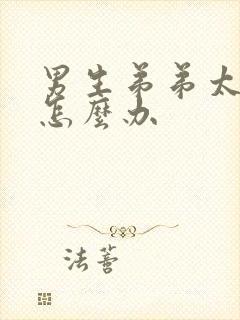 男生弟弟太
怎麼办
法薈